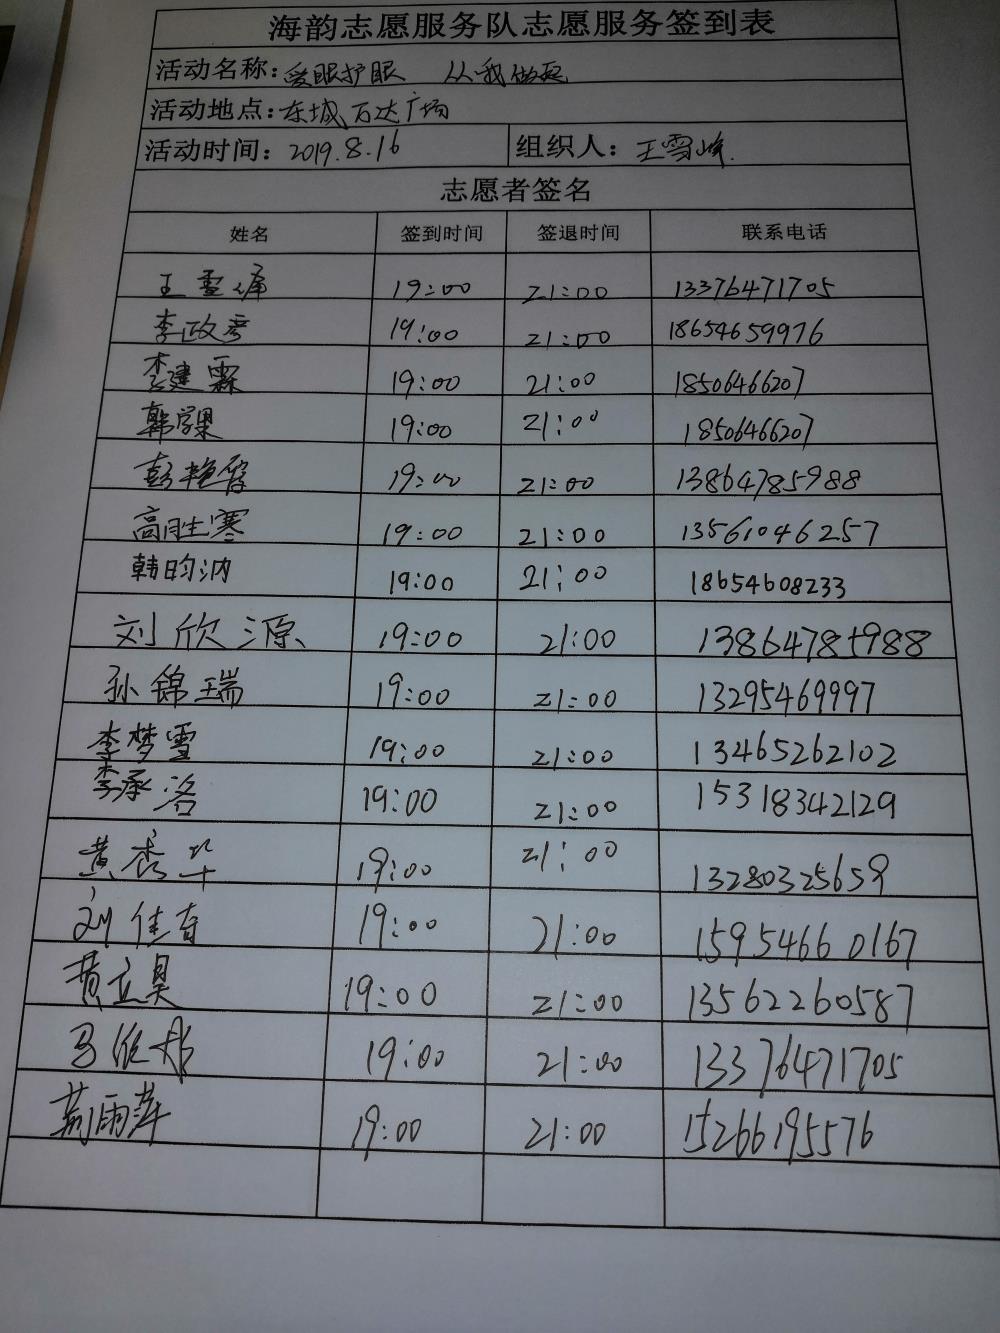 海韵志愿服务队志愿服务签到表
活动名称：爱眼护眼 从我做起
活动地点：东城万达广场
活动时间：2019.8.16 组织人：王雪峰
志愿者签名
姓名 签到时间 签退时间 联系电话
王雪峰 19:00 21:00 13376471705
李政 19:00 21:00 18654659976
李建霖 19:00 21:00 18506466207
韩学果 19:00 21:00 18506466207
彭艳 19:00 21:00 13864785988
高胜寒 19:00 21:00 13561046257
韩昀汭 19:00 21:00 18654608233
刘欣源 19:00 21:00 13864785988
孙锦瑞 19:00 21:00 13295469997
李梦雪 19:00 21:00 13465262102
李承洺 19:00 21:00 15318342129
黄秀华 19:00 21:00 13280325659
刘佳奇 19:00 21:00 15954660167
黄立昊 19:00 21:00 13562260587
马 19:00 21:00 13376471705
荊雨萍 19:00 21:00 15266195576